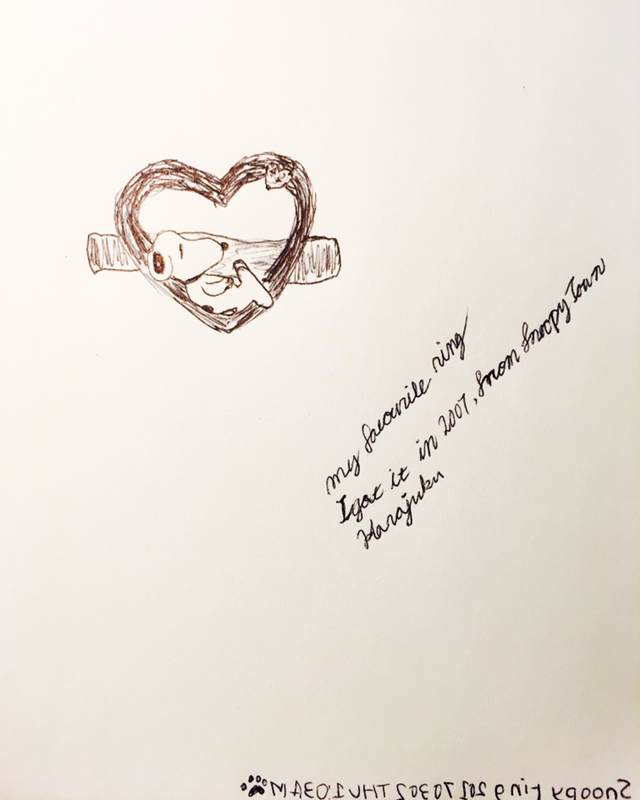 my favorite ring
I got it in 2007, from Snoopy Town
Harajuku
Snoopy ring 20170302 THU 1:03AM